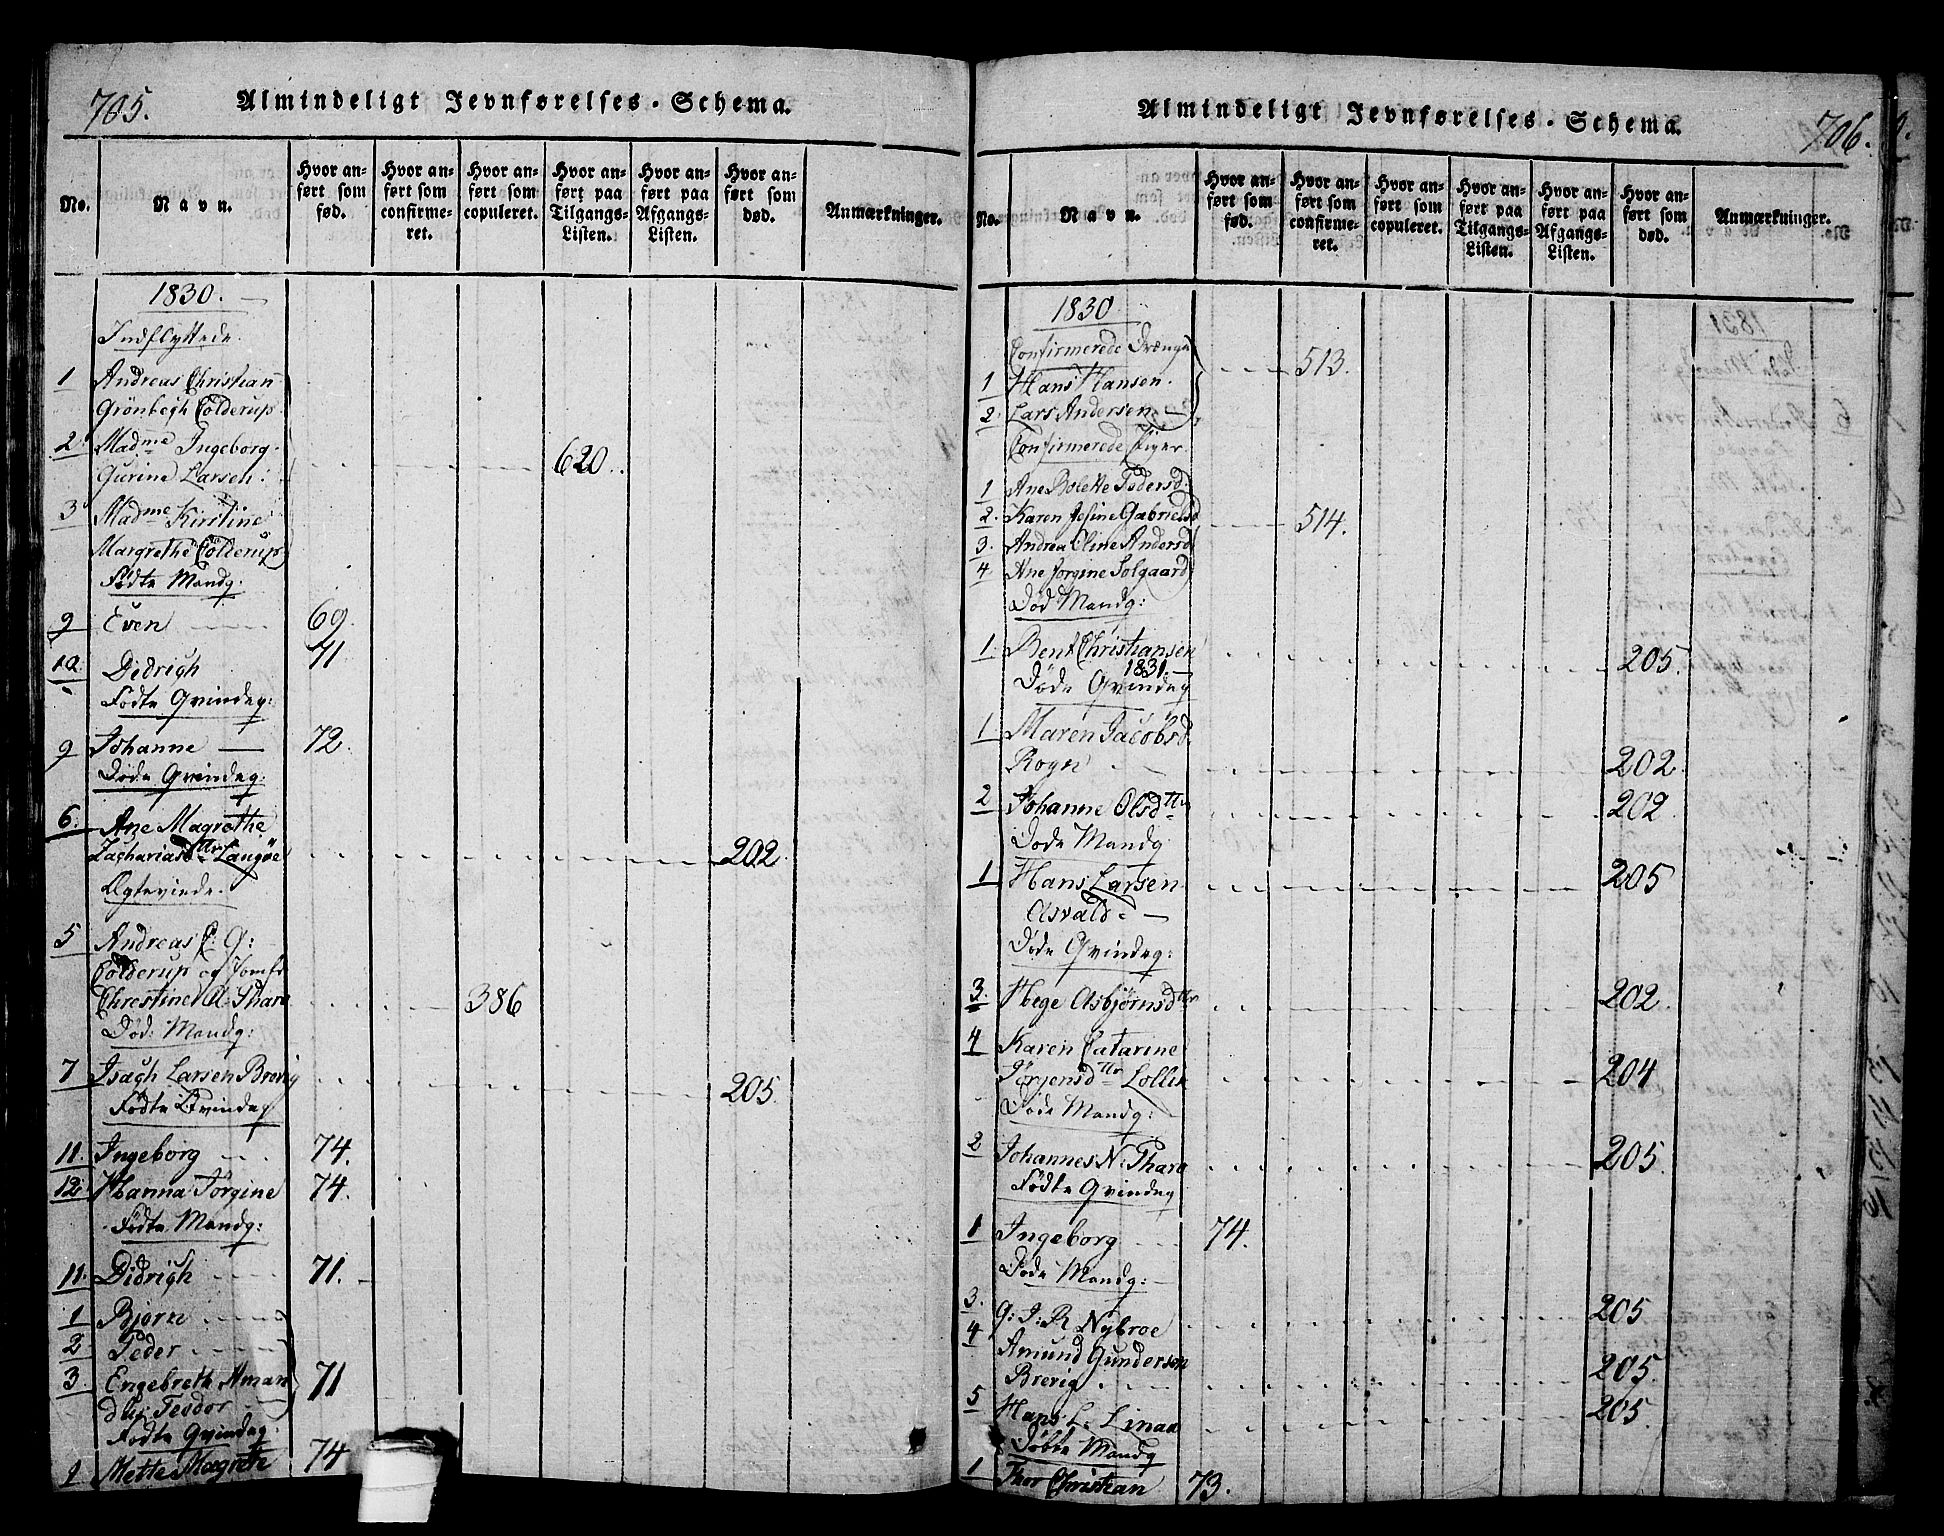 705.
Almindeligt Jevnførelses-Schema.
No.
Navn.
Hvor anført som fød.
Hvor anført som confirmeret.
Hvor anført som copuleret.
Hvor anført paa Tilgangs-Listen.
Hvor anført paa Afgangs-Listen.
Hvor anført som død.
Anmærkninger.
1830.
Indflyttede.
1 Andreas Christian
Grönbegh Cölderup
2 Madme Ingeborg
Gurine Larsen. 620.
3 Madme Kirstine
Margrethe Cölderup
Födte Mandq:
9 Even 69.
10. Didrigh 71
Födte Qvindeq:
9 Johanne 72.
Döde Qvindeq:
6. Ane Magrethe
Zachariasdttr Langöe 202.
Ægteviede.
5 Andreas C: G:
Cölderup og Jomfr
Christine A. Thare 386
Död: Mandq:
7 Isach Larsen Brevig 205.
Födte Qvindeq
11. Ingeborg 74.
12. Hanna Törgine 74.
Födte Mandq:
11. Didrigh 71.
1 Bjorn
2 Peder
3 Engebreth Aman 71
dus Teodor
Födte Qvindeq.
1 Mette Magrete 74
Almindeligt Jevnførelses-Schema.
706.
No.
Navn.
Hvor anført som fød.
Hvor anført som confirmeret.
Hvor anført som copuleret.
Hvor anført paa Tilgangs-Listen.
Hvor anført paa Afgangs-Listen.
Hvor anført som død.
Anmærkninger.
1830.
Confirmerede Drenge
513.
1 Hans Hansen.
2. Lars Andersen.
Confirmerede Piger.
1 Ane Bolette Pedersd:
2. Karen Gabrielsd 514.
3. Andrea Oline Andersd
4 Ane Jorgine Solgaard
Död Mandq:
1. Bent Christiansen 205.
1831.
Döde Qvindeq
1 Maren Jacobsd.
Rogn 202.
2 Johanne Olsdttr 202.
Döde Mandq
1 Hans Larsen 205
Asvald.
Döde Qvindeq:
3. Hege Asbjörnsdttr 202.
4 Karen Catarine
Jörjensdttr 204
Döde Mandq:
2 Johannes N. Thare 205.
Födte Qvindeq
1 Ingeborg 74.
Döde Mandq:
3. G: J: R Nybroe 205
4 Amund Gundersen
Brevig 205.
5 Hans L. Linaa 205.
Döbte Mandq
1 Thor Christian 73.